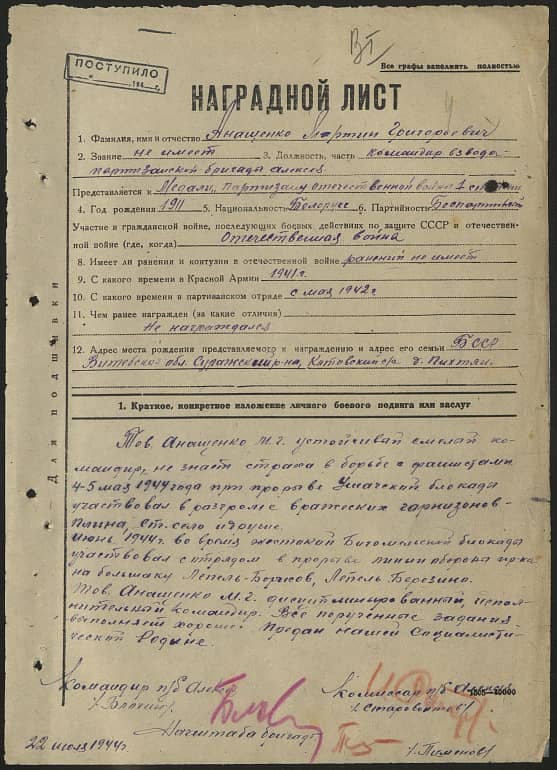 ПОСТУПИЛО
"   "   194   г.
Все графы заполнять полностью
НАГРАДНОЙ ЛИСТ
1. Фамилия, имя и отчество Анащенко Мартин Григорьевич
2. Звание не имеет 3. Должность, часть командир взвода
партизанской бригады Алексея
Представляется к Медали, Партизану отечественной войны 1
4. Год рождения 1911 5. Национальность Белорус 6. Партийность Беспартийный
Участие в гражданской войне, последующих боевых действиях по защите СССР и отечествен-
ной войне (где, когда) Отечественная война
8. Имеет ли ранения и контузии в отечественной войне ранений не имеет
9. С какого времени в Красной Армии 1941г.
10. С какого времени в партизанском отряде с мая 1942г
11. Чем ранее награжден (за какие отличия)
Не награждался
12. Адрес места рождения представляемого к награждению и адрес его семьи БССР
Витебская обл. Суражский р-на, д. Пихтяи.
Для подшивки
1. Краткое, конкретное изложение личного боевого подвига или заслуг
Тов. Анащенко М.Г. устойчивай смелай ко-
мандир, не знает страха в борьбе с фашистами
4-5 мая 1944 года при прорыве Ушачской блокады
участвовал в разгроме вражеских гарнизонов-
Плина, Ст. село и друше.
июнь 1944г. во время жестокай Бегомельской блокады
участвовал с отрядом в прорыве линии оборона пр-ка
на большаку Лепель-Борисов, Лепель Березино.
Тов. Анащенко М.Г. дисциплинированный, испол-
нительный командир. Все порученные задания
выполняет хорошо. Предан нашей Социалисти-
ческой Родине.
Командир п/б Алексея
/Блохин/
Комиссар п/б Алексея
/Старовойтов/
Начштаба бригады
/Пименов/
22 июля 1944г.